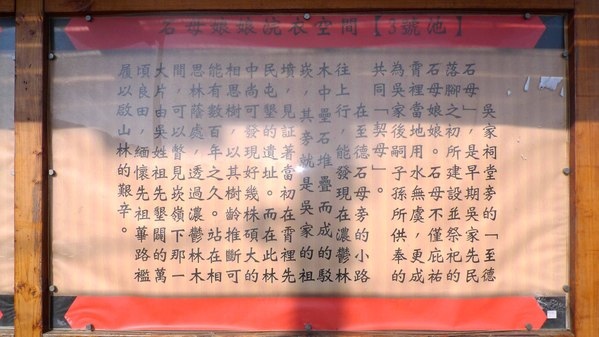 石母娘娘浣衣空間【3號池】
吳家祠堂旁的「至德
石母」，是早期吳家先民
落腳之初所建設並祭祀的
石母娘娘。石母不僅庇祐
霄裡當地用水無虞，更成
為吳家後嗣子孫所供奉的
共同「契母」。
在至德石母旁的小路
往上行，能發現在濃鬱林
木中疊石堆疊而成的駁
崁，其旁就是吳家的祖
墳，見証著當初在霄裡先
民屯墾的遺址。而在此林
中尚可發現好幾株碩大的
相思樹，以其樹齡推斷可
能有數百年之久。站在相
思林蔭處，透過濃鬱林木
間，可以瞥見崁嶺下那一
大片由吳姓祖先墾闢的萬
頃良田，緬懷先祖蓽路襤
履以啟山林的艱辛。